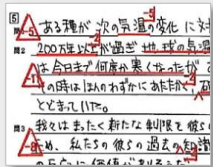 5
ある種が 次の気温の変化に対
-5
問1 -5
問2 200万年以上が過ぎ 地球の気温
は今日まで何度か寒くなったが
-1
の時はほんのわずかにあたたかく
とどまっていた。
問3 我々はまったく新たな制限と彼ら
-8 め、私たちの彼らの過去の知識